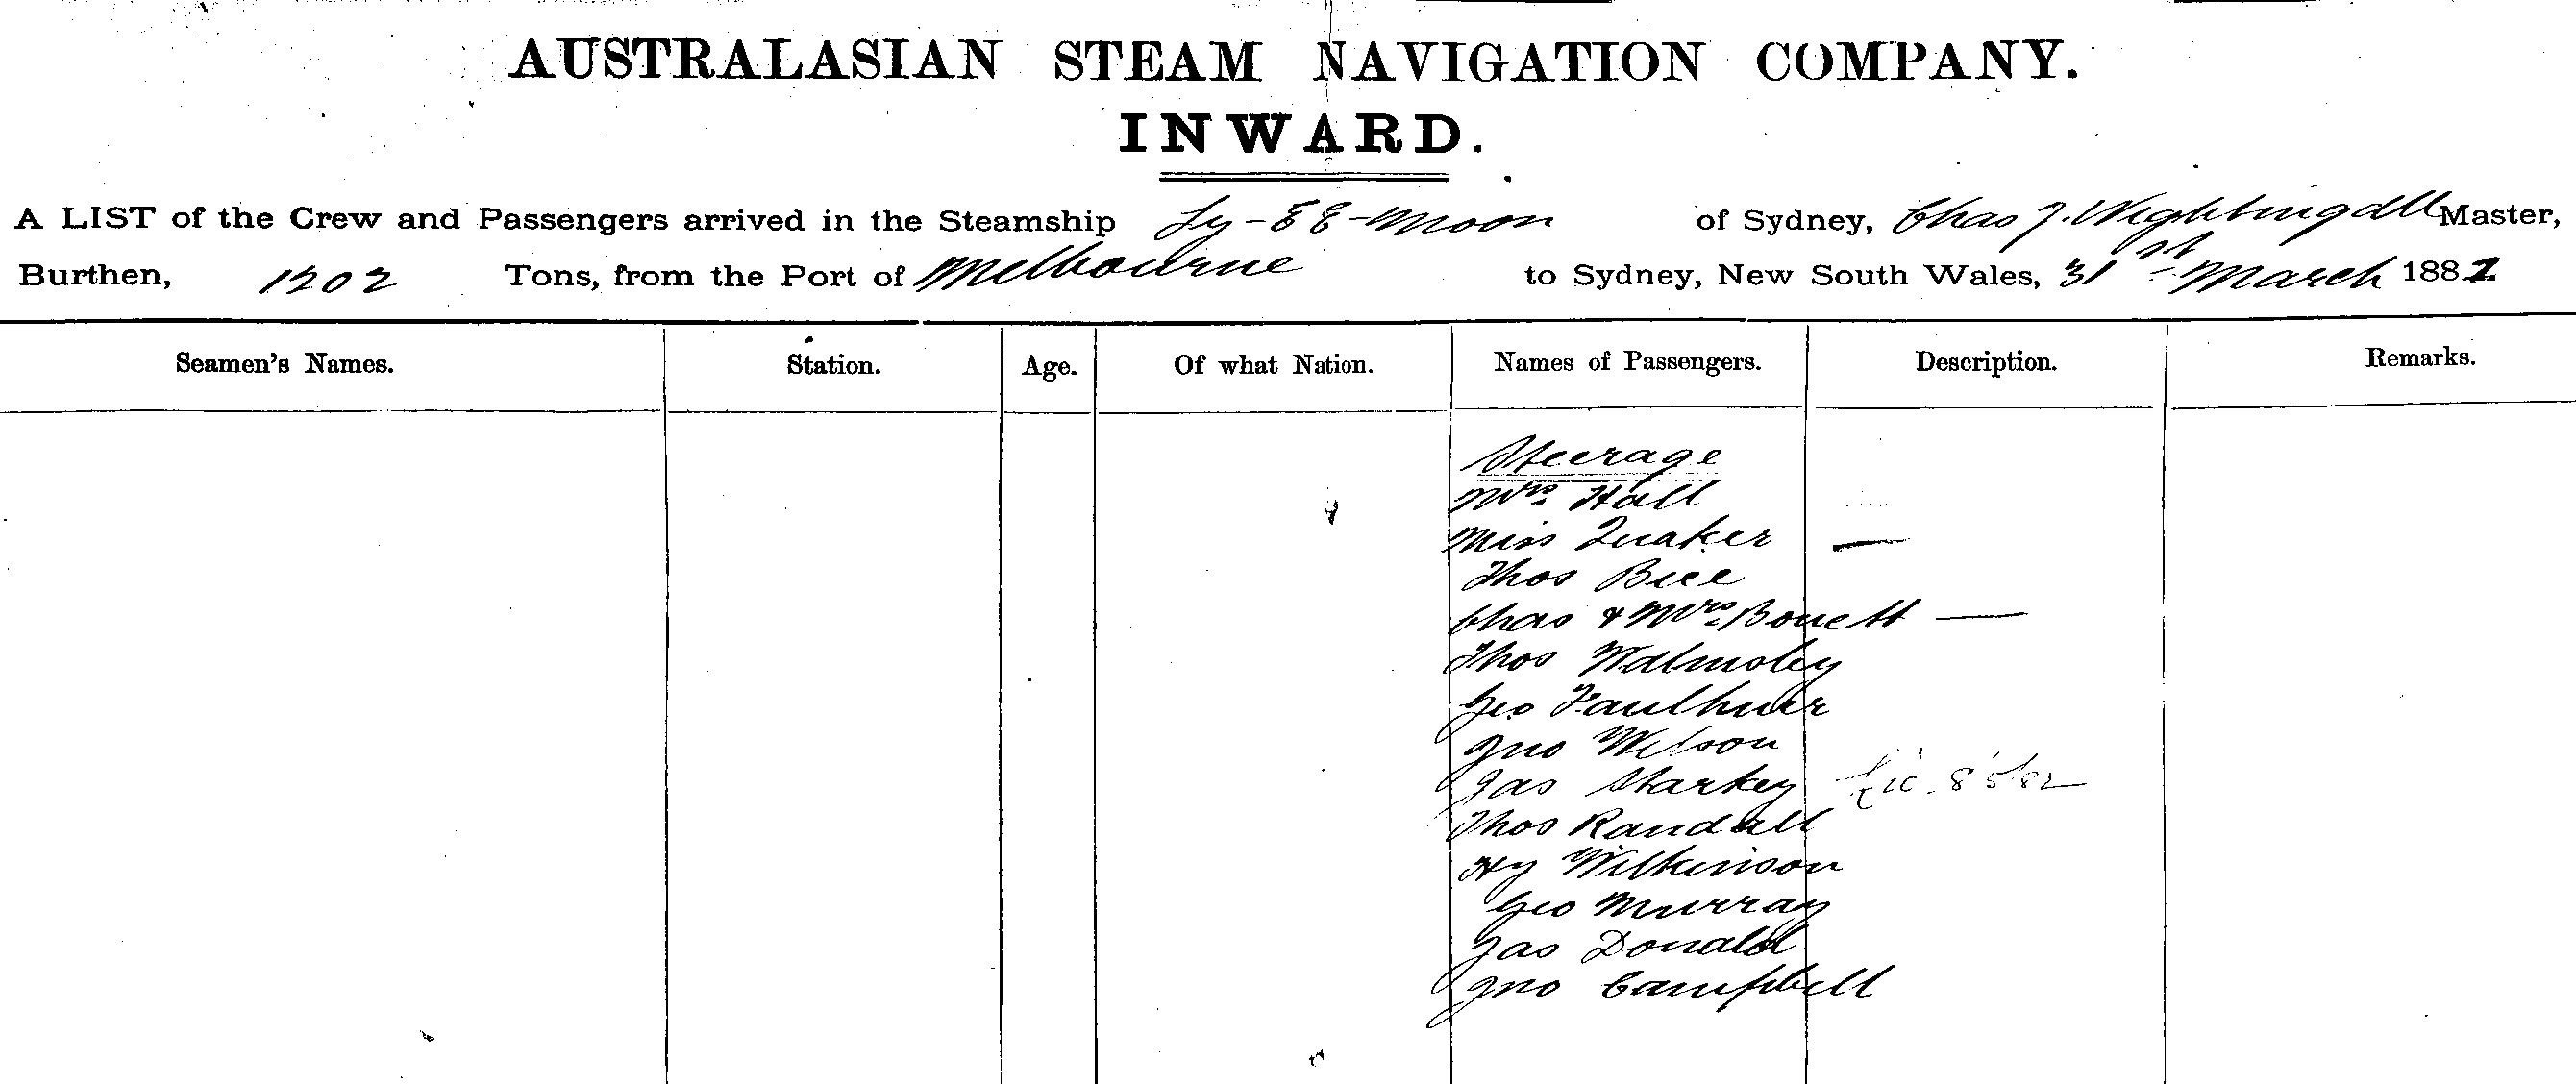 AUSTRALASIAN STEAM NAVIGATION COMPANY.
INWARD.
A LIST of the Crew and Passengers arrived in the Steamship Ly-EE-Moon of Sydney, Chas J. Nightingall Master,
Burthen, 1202 Tons, from the Port of Melbourne to Sydney, New South Wales, 31st March 1882
Seamen's Names. Station. Age. Of what Nation. Names of Passengers. Description. Remarks.
Steerage
Mrs Hall
Miss Quaker —
Thos Bice
Chas & Mrs —
Thos Walmsley
Geo Faulkner
Jno Wilson
Jas Starkey 8/5/82
Thos Randall
Hy Wilkinson
Geo Murray
Jas Donald
Jno Campbell